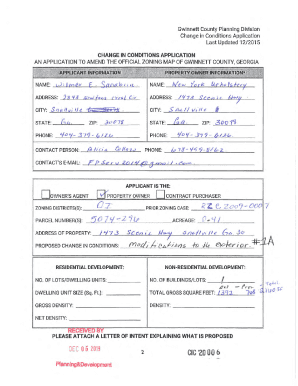 Gwinnett County Planning Division
Change in Conditions Application
Last Updated 12/2015
CHANGE IN CONDITIONS APPLICATION
AN APPLICATION TO AMEND THE OFFICIAL ZONING MAP OF GWINNETT COUNTY, GEORGIA
APPLICANT INFORMATION PROPERTY OWNER INFORMATION*
NAME: E. NAME: New York Upholstery
ADDRESS: ADDRESS: 1473 Scenic Hwy
CITY: Snellville CITY: Snellville
STATE: Ga ZIP: 30078 STATE: Ga. ZIP: 30078
PHONE: 404-379-6126 PHONE: 404-379-6126
CONTACT PERSON: Alicia PHONE: 678-459-8162
CONTACT'S E-MAIL: @gmail.com
APPLICANT IS THE:
OWNER'S AGENT PROPERTY OWNER CONTRACT PURCHASER
ZONING DISTRICT(S): OI PRIOR ZONING CASE:
PARCEL NUMBER(S): 5074-296 ACREAGE: 0.41
ADDRESS OF PROPERTY: 1473 Scenic Hwy Snellville Ga 30
PROPOSED CHANGE IN CONDITIONS: modifications to the exterior #1A
RESIDENTIAL DEVELOPMENT: NON-RESIDENTIAL DEVELOPMENT:
NO. OF LOTS/DWELLING UNITS: NO. OF BUILDINGS/LOTS: 1
DWELLING UNIT SIZE (Sq. Ft.): TOTAL GROSS SQUARE FEET: 1392
GROSS DENSITY: DENSITY:
NET DENSITY:
RECEIVED BY
PLEASE ATTACH A LETTER OF INTENT EXPLAINING WHAT IS PROPOSED
DEC 05 2019
2
CIC '20 00 6
Planning&Development